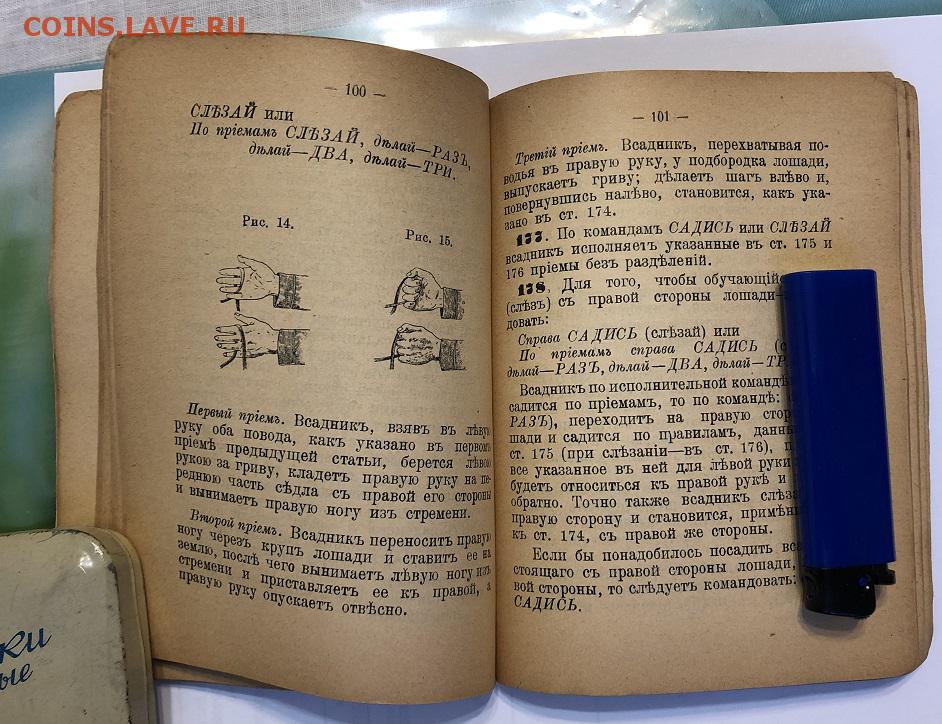 COINS.LAVE.RU
— 100 —
СЛѢЗАЙ или
По пріемамъ СЛѢЗАЙ, дѣлай—РАЗЪ,
дѣлай—ДВА, дѣлай—ТРИ.
Рис. 14.
Рис. 15.
Первый пріемъ. Всадникъ, взявъ въ лѣвую
руку оба повода, какъ указано въ первомъ
пріемѣ предыдущей статьи, берется лѣвою
рукою за гриву, кладетъ правую руку на пе-
реднюю часть сѣдла съ правой его стороны
и вынимаетъ правую ногу изъ стремени.
Второй пріемъ. Всадникъ переноситъ правую
ногу черезъ крупъ лошади и ставитъ ее на
землю, послѣ чего вынимаетъ лѣвую ногу изъ
стремени и приставляетъ ее къ правой, а
правую руку опускаетъ отвѣсно.
— 101 —
Третій пріемъ. Всадникъ, перехватывая по-
водья въ правую руку, у подбородка лошади,
выпускаетъ гриву; дѣлаетъ шагъ влѣво и,
повернувшись налѣво, становится, какъ ука-
зано въ ст. 174.
177. По командамъ САДИСЬ или СЛѢЗАЙ
всадникъ исполняетъ указанные въ ст. 175 и
176 пріемы безъ раздѣленій.
178. Для того, чтобы обучающій
(слѣзъ) съ правой стороны лошади—
довать:
Справа САДИСЬ (слѣзай) или
По пріемамъ справа САДИСЬ
дѣлай—РАЗЪ, дѣлай—ДВА, дѣлай—ТР
Всадникъ по исполнительной командѣ
садится по пріемамъ, то по командѣ:
РАЗЪ), переходитъ на правую стор
шади и садится по правиламъ, данны
ст. 175 (при слѣзаніи—въ ст. 176), п
все указанное въ ней для лѣвой руки
будетъ относиться къ правой рукѣ и
обратно. Точно также всадникъ слѣза
правую сторону и становится, примѣни
къ ст. 174, съ правой же стороны.
Если бы понадобилось посадить вса
стоящаго съ правой стороны лошади,
вой стороны, то слѣдуетъ командовать:
САДИСЬ.
ки
ые